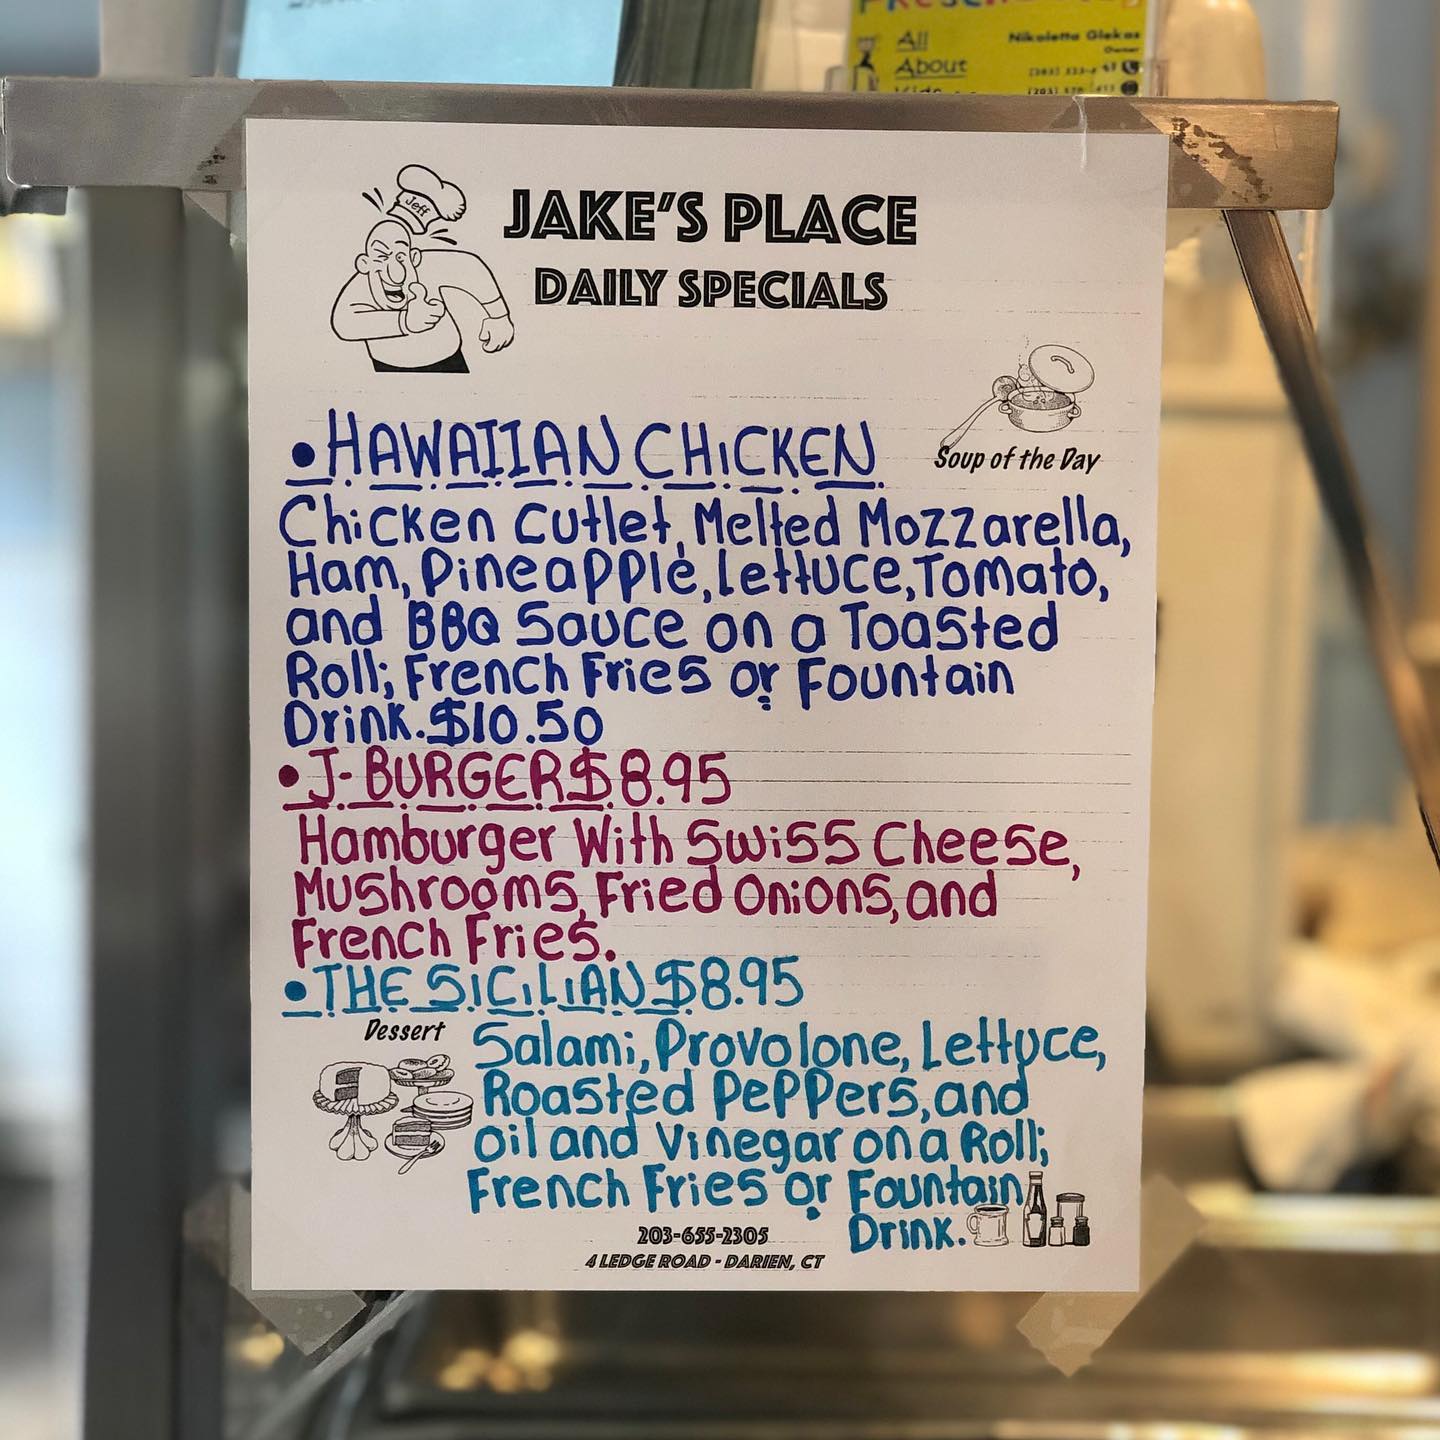 All
About
Nikoletta Glekas
Owner
Jeff
JAKE'S PLACE
DAILY SPECIALS
Soup of the Day
• HAWAIIAN CHICKEN
Chicken Cutlet, Melted Mozzarella,
Ham, Pineapple, Lettuce, Tomato,
and BBQ Sauce on a Toasted
Roll; French Fries or Fountain
Drink. $10.50
• J-BURGER $8.95
Hamburger With Swiss Cheese,
Mushrooms, Fried Onions, and
French Fries.
• THE SICILIAN $8.95
Dessert
Salami, Provolone, Lettuce,
Roasted Peppers, and
Oil and Vinegar on a Roll;
French Fries or Fountain
Drink.
203-655-2305
4 LEDGE ROAD - DARIEN, CT